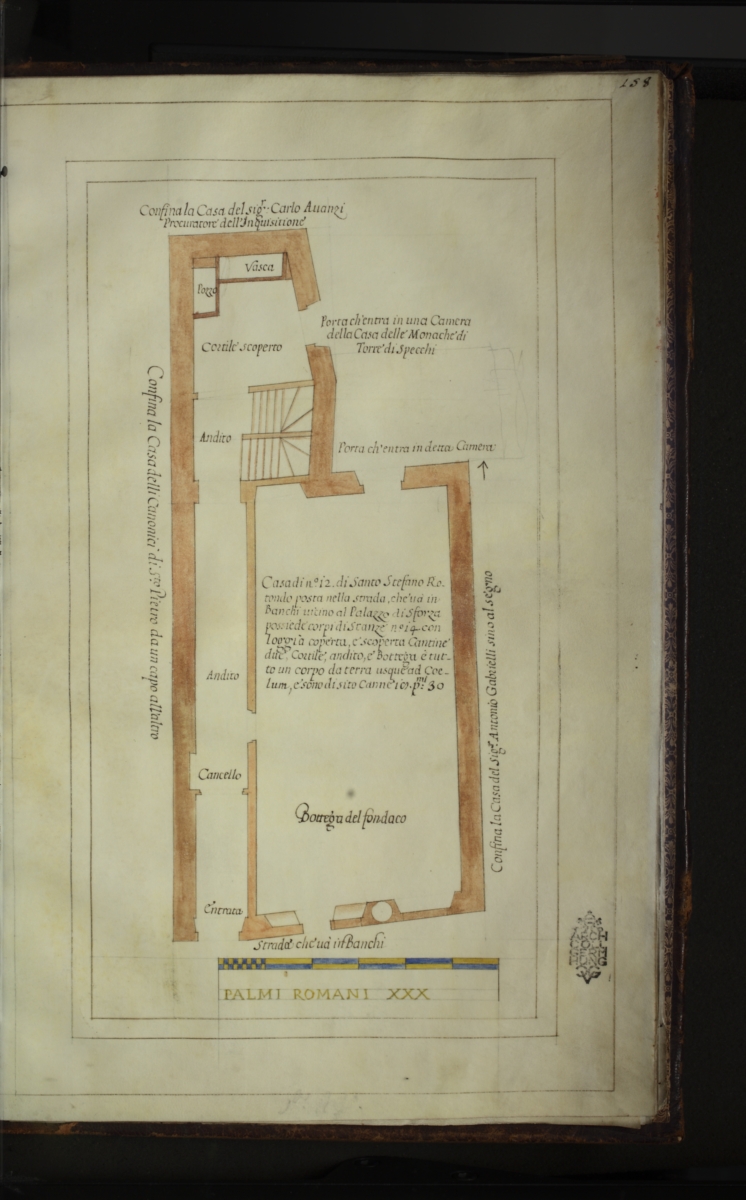 158
Confina la Casa del sig.r Carlo Auanzi
Procuratore dell'Inquisitione
Vasca
Pozzo
Porta ch'entra in una Camera
della Casa delle Monache di
Torre di Specchi
Cortile scoperto
Confina la Casa delli Canonici di S.to Pietro da un capo all'altro
Andito
Porta ch'entra in detta Camera
Casa di n.o 12 di Santo Stefano Ro-
tondo posta nella strada, che ua in
Banchi uicino al Palazzo di Sforza
possiede corpi di Stanze n.o 14 con
loggia coperta, e scoperta Cantine
due, Cortile, andito, e Bottega è tut-
to un corpo da terra usque ad Coe-
lum, e sono di sito Canne 101. p.mi 30
Confina la Casa del sig.r Antonio Gabrielli sino al segno
Andito
Cancello
Bottega del fondaco
Entrata
Strada che ua in Banchi
PALMI ROMANI XXX